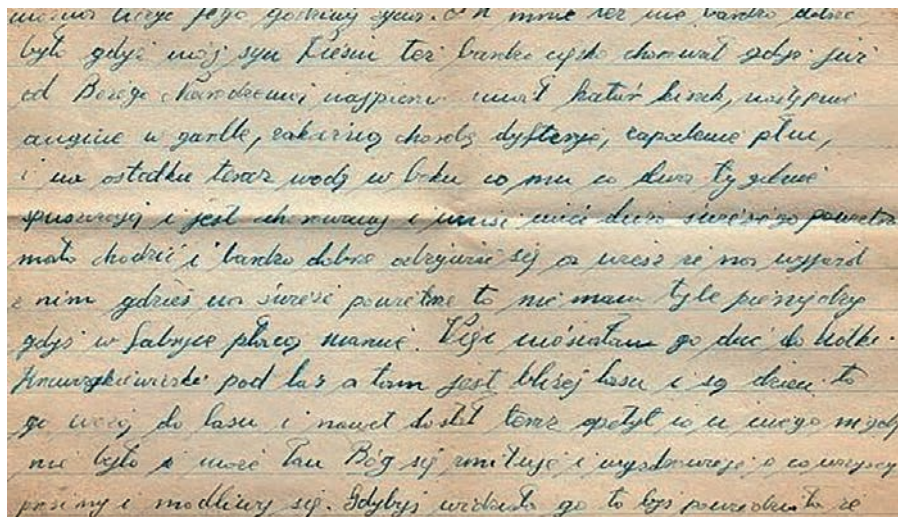 jego godziny życia. I u mnie też nie bardzo dobrze
było gdyż mój syn też bardzo często chorował gdyż już
od Bożego Narodzenia najpierw miał katar kiszek, następnie
anginę w gardle, zakaźną chorobę dyfterję, zapalenie płuc,
i na ostatku teraz wodę w boku co mu co dwa tygodnie
i jest i musi mieć dużo świeżego powietrza
mało chodzić i bardzo dobrze odżywić się a wiesz że na wyjazd
z nim gdzieś na świeże powietrze to nie mam tyle pieniędzy
gdyż w fabryce płacą marnie. Więc musiałam go dać do
pod las a tam jest bliżej lasu i są dzieci to
go wezą do lasu i nawet dostał teraz apetyt co u niego nigdy
nie było a może Pan Bóg się zmiłuje i wyzdrowieje o co wszyscy
prosimy i modlimy się. Gdybyś widziała go to byś powiedziała że